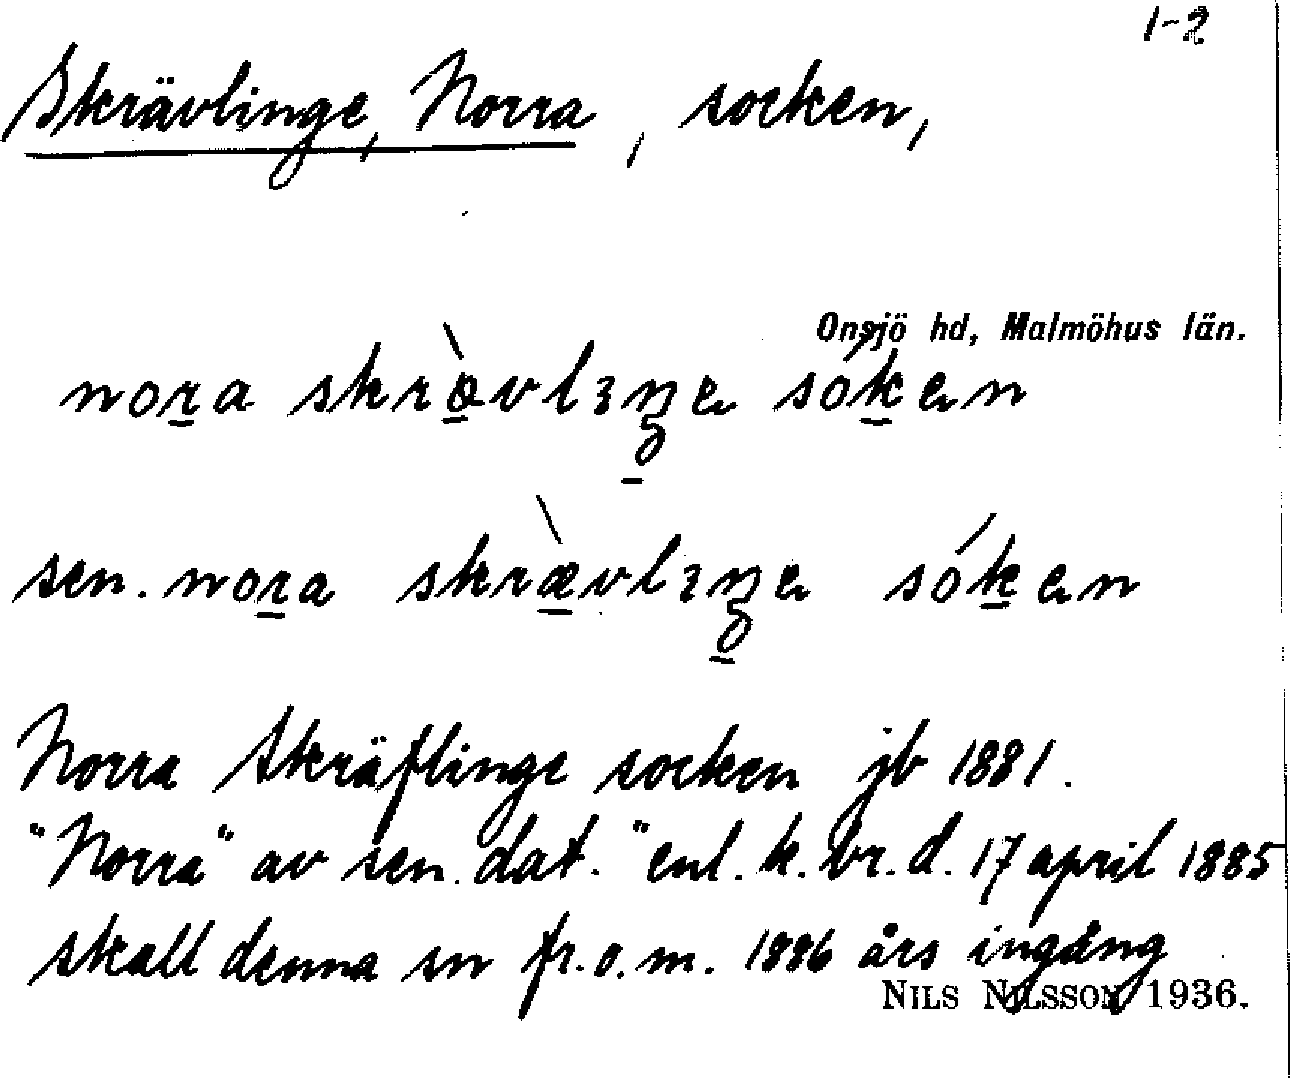 1-2
Skrävlinge, Norra, socken,
Onsjö hd, Malmöhus län.
nora skrævlꞫŋe sókɘn
sen. nora skrævlꞫŋe sókɘn
Norra Skräflinge socken jb 1881.
"Norra" av sen. dat. "enl. k. br. d. 17 april 1885
skall denna sn fr.o.m. 1886 års ingång
NILS NILSSON 1936.